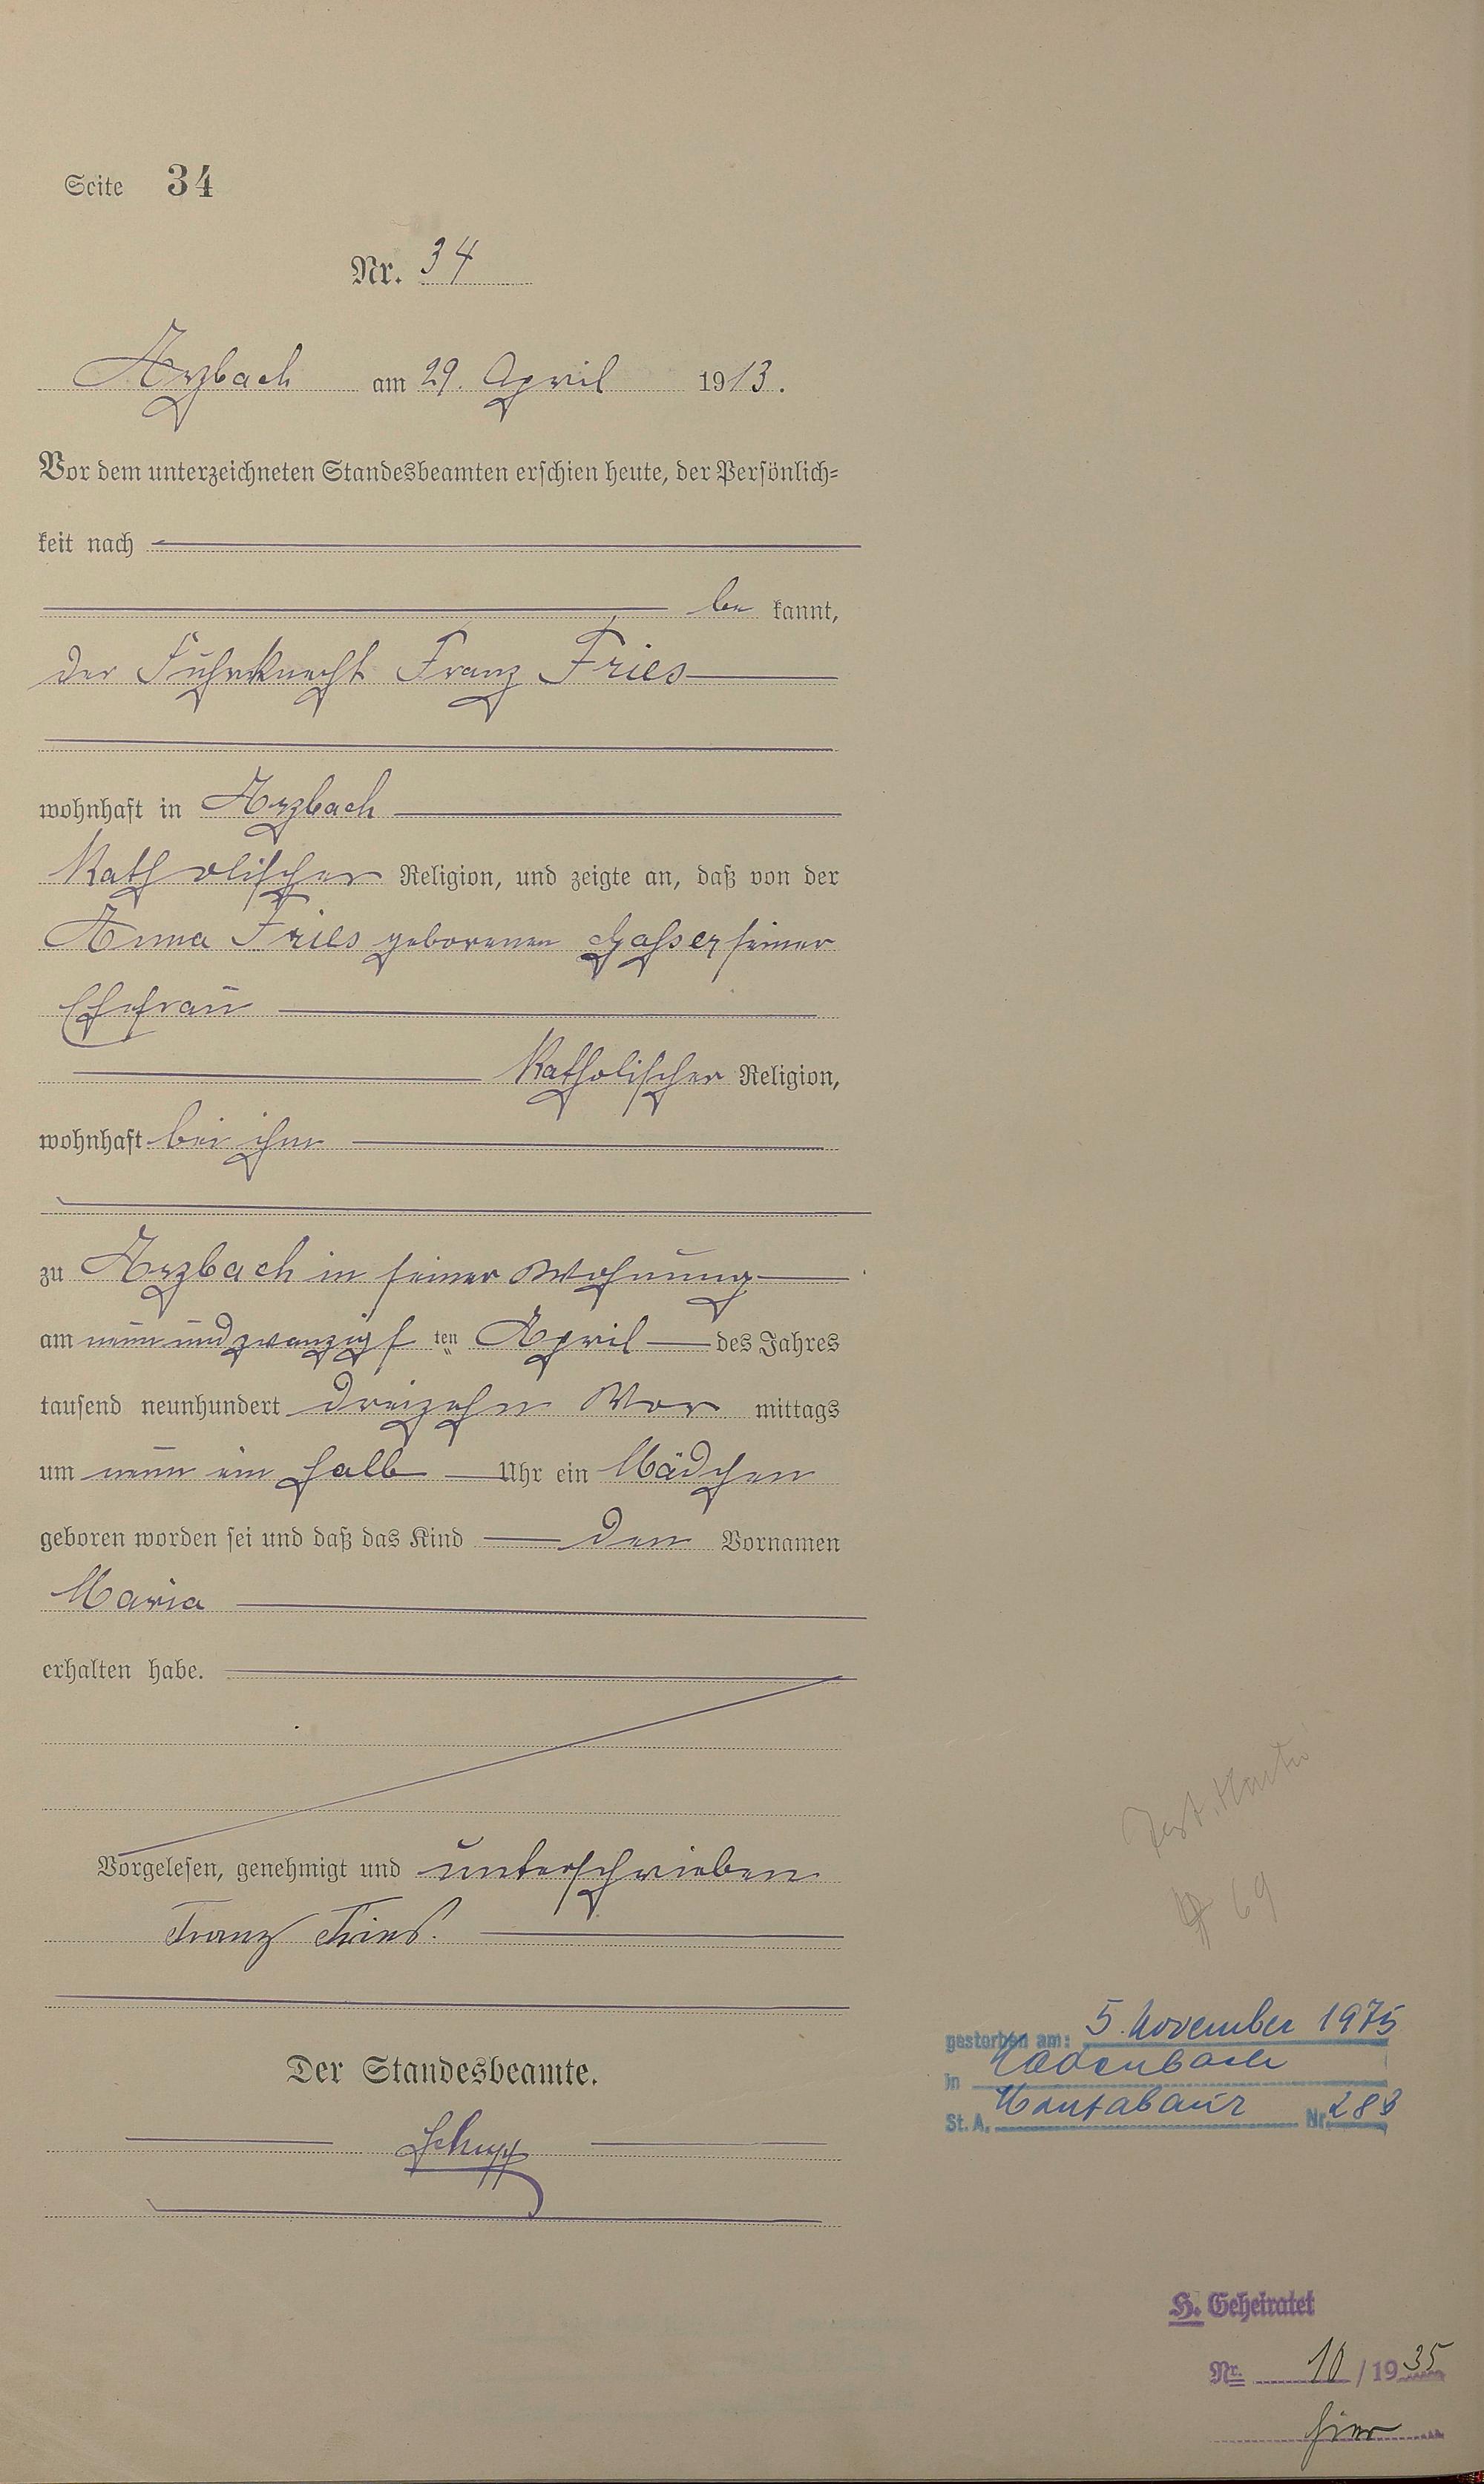 Seite 34
Nr. 34
Arzbach am 29. April 1913.
Vor dem unterzeichneten Standesbeamten erschien heute, der Persönlich=
keit nach
be kannt,
der Fuhrknecht Franz Fries
wohnhaft in Arzbach
katholischer Religion, und zeigte an, daß von der
Anna Fries geborenen Gasser seiner
Ehefrau
katholischer Religion,
wohnhaft bei ihm
zu Arzbach in seiner Wohnung
am neunundzwanzigs ten April des Jahres
tausend neunhundert dreizehn Vor mittags
um neun ein halb Uhr ein Mädchen
geboren worden sei und daß das Kind den Vornamen
Maria
erhalten habe.
Vorgelesen, genehmigt und unterschrieben
Franz Fries.
Der Standesbeamte.
Schupp
69
gestorben am: 5. November 1975
in Kadenbach
St. A. Montabaur Nr. 283
H. Geheiratet
Nr. 10/1935
hier